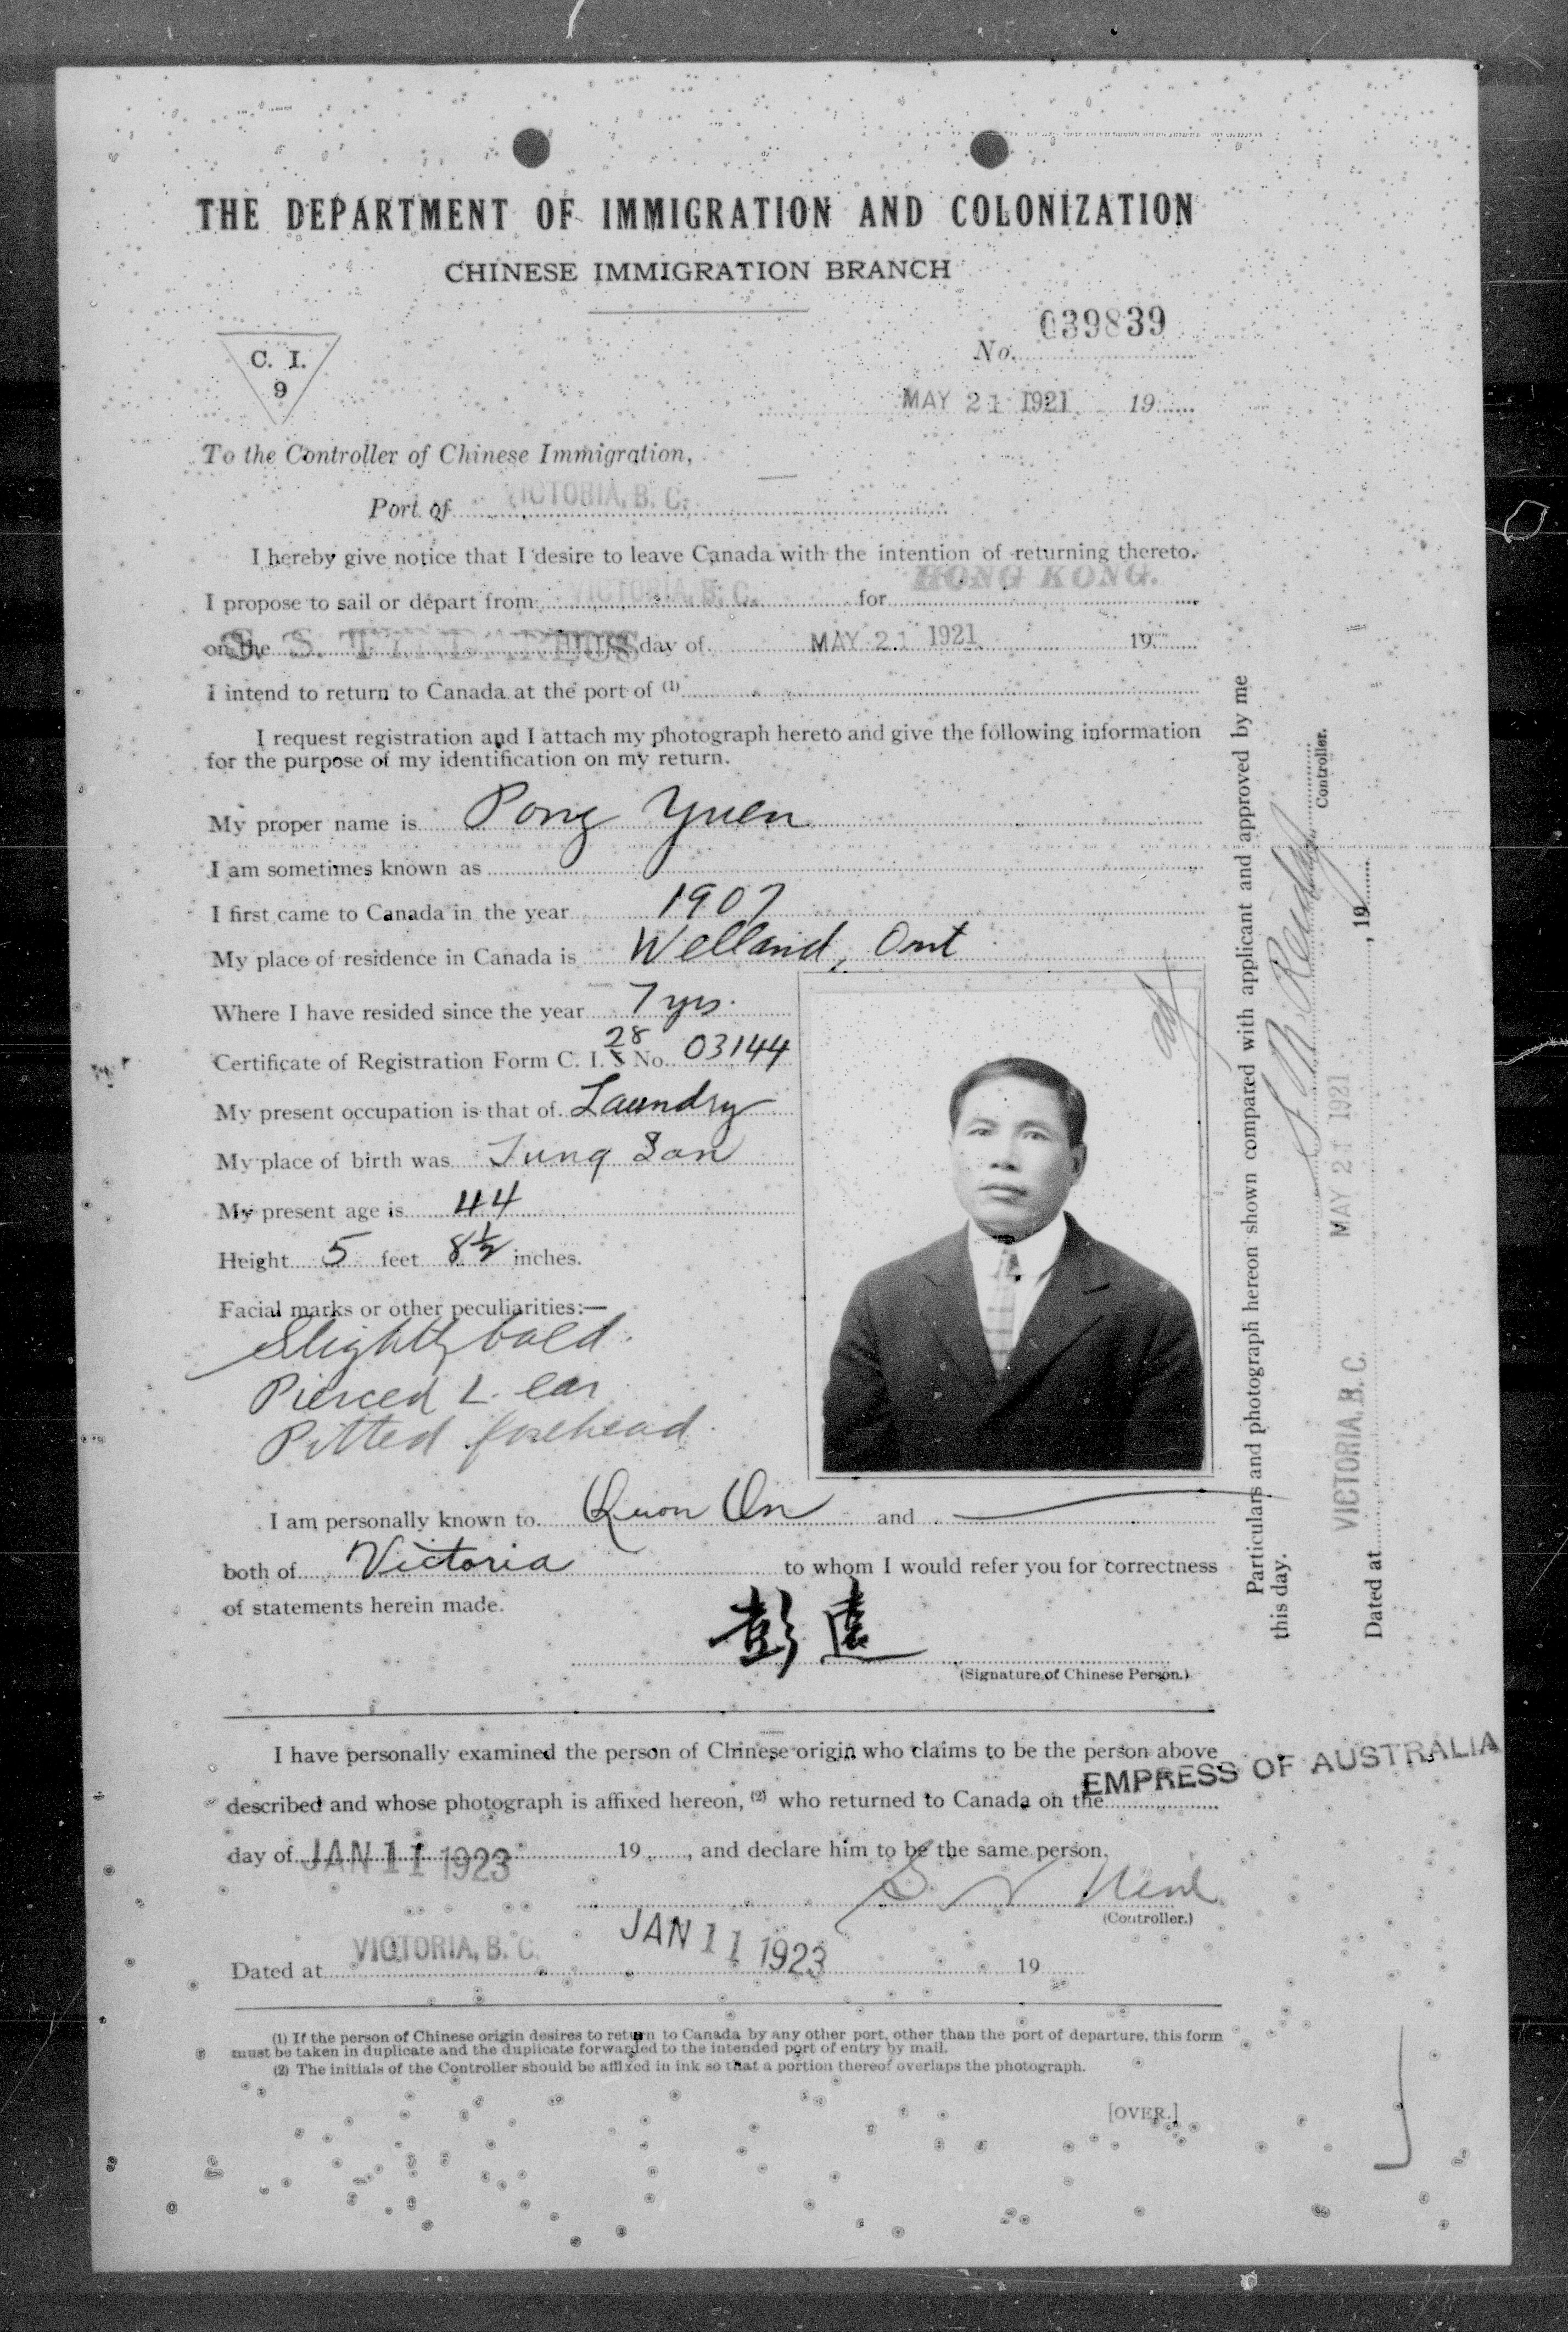 THE DEPARTMENT OF IMMIGRATION AND COLONIZATION
CHINESE IMMIGRATION BRANCH
C. I.
9
No. 039839
MAY 21 1921 19
To the Controller of Chinese Immigration,
Port of VICTORIA, B. C.
I hereby give notice that I desire to leave Canada with the intention of returning thereto.
I propose to sail or depart from VICTORIA, B. C. for HONG KONG.
on the S. S. TYNDAREUS day of MAY 21 1921 19
I intend to return to Canada at the port of (1)
I request registration and I attach my photograph hereto and give the following information
for the purpose of my identification on my return.
My proper name is Pong Yuen
I am sometimes known as
I first came to Canada in the year 1907
My place of residence in Canada is Welland, Ont
Where I have resided since the year 7 yrs.
Certificate of Registration Form C. I. 28 No. 03144
My present occupation is that of Laundry
My place of birth was Sung San
My present age is 44
Height 5 feet 8½ inches.
Facial marks or other peculiarities:—
Slightly bald.
Pierced L. ear
Pitted forehead.
I am personally known to Quon On and
both of Victoria to whom I would refer you for correctness
of statements herein made.
彭遠
(Signature of Chinese Person.)
I have personally examined the person of Chinese origin who claims to be the person above
EMPRESS OF AUSTRALIA
described and whose photograph is affixed hereon, (2) who returned to Canada on the
day of JAN 11 1923 19 , and declare him to be the same person.
(Controller.)
Dated at VICTORIA, B. C. JAN 11 1923 19
(1) If the person of Chinese origin desires to return to Canada by any other port, other than the port of departure, this form
must be taken in duplicate and the duplicate forwarded to the intended port of entry by mail.
(2) The initials of the Controller should be affixed in ink so that a portion thereof overlaps the photograph.
[OVER.]
Particulars and photograph hereon shown compared with applicant and approved by me
this day.
Controller.
Dated at VICTORIA, B. C. MAY 21 1921 , 19